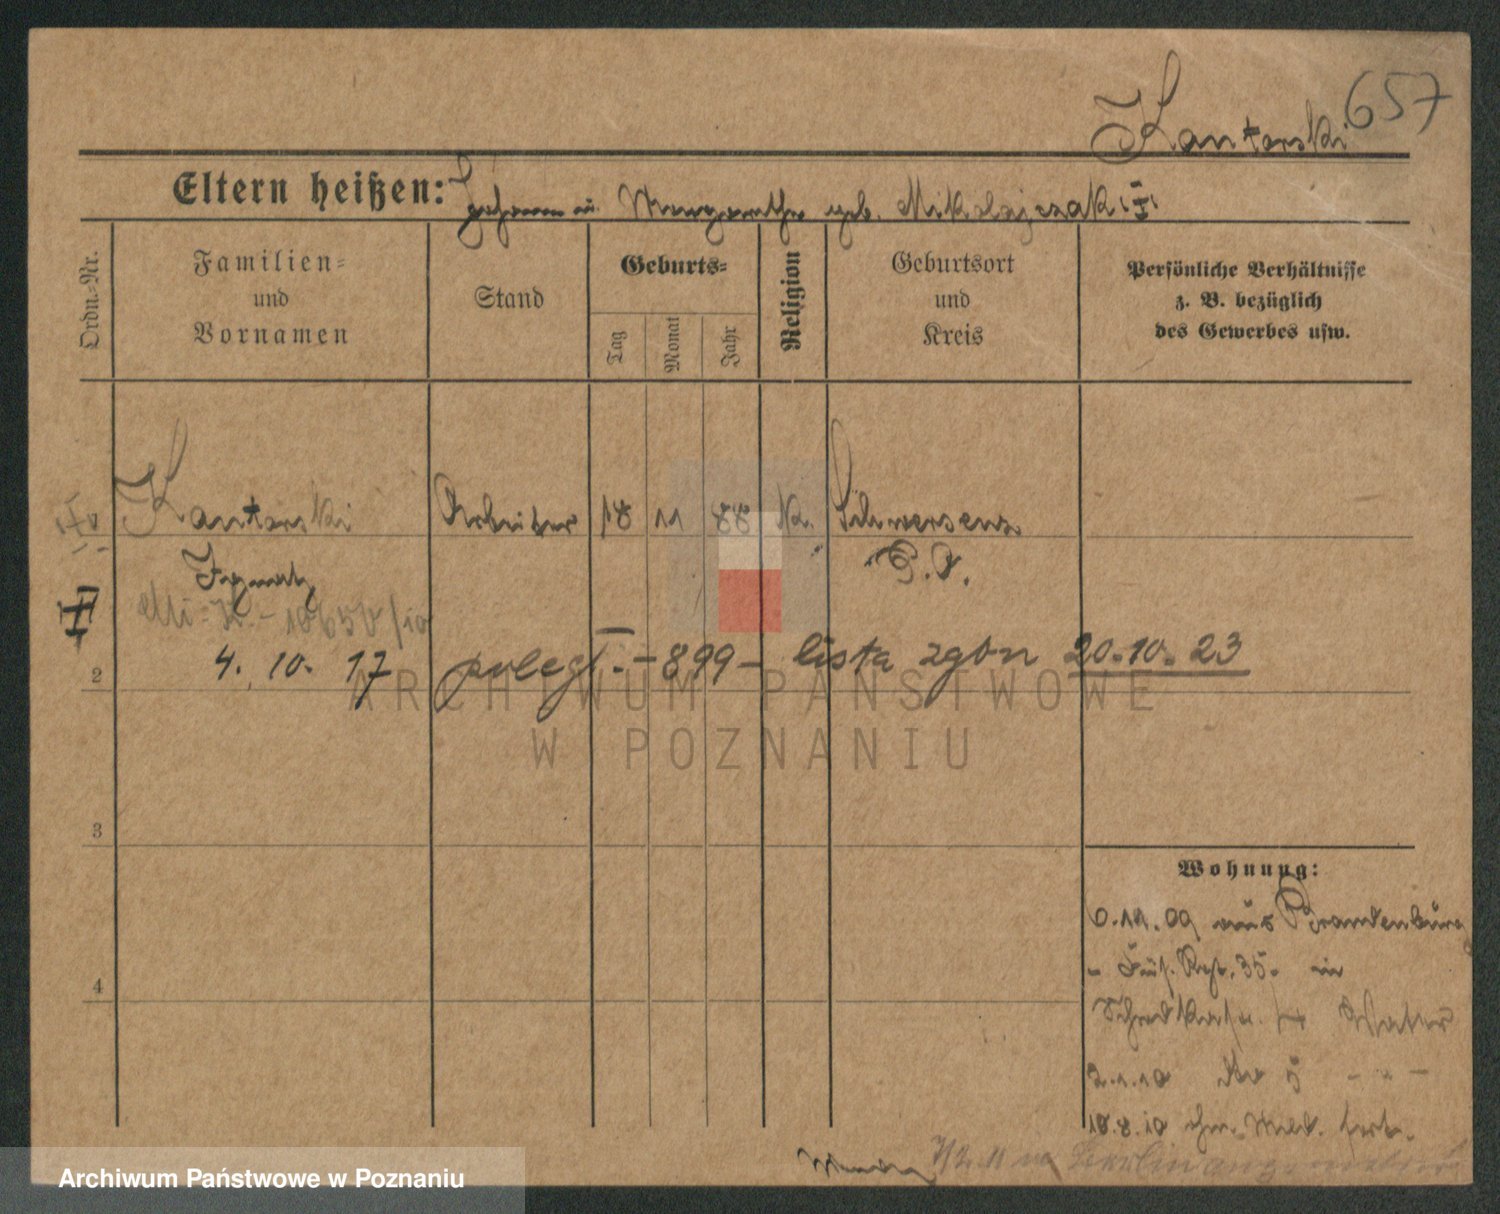 657
Kantorski
Eltern heißen: Johann u. Margarethe geb. Mikolajczak
Ordn.-Nr.
Familien-
und
Vornamen
Stand
Geburts-
Tag
Monat
Jahr
Religion
Geburtsort
und
Kreis
Persönliche Verhältnisse
z. B. bezüglich
des Gewerbes usw.
Kantorski Arbeiter 18 11 88 K. Schwersenz
Ignatz P. O.
4. 10. 17 poległ. - 899 - lista zgon 20.10.23
2
3
4
Wohnung:
6.11.09 aus Brandenburg
- Füs. Regt. 35. in
2.1.10
18.8.10 ohn. Meld. fort.
ARCHIWUM PAŃSTWOWE
W POZNANIU
Archiwum Państwowe w Poznaniu